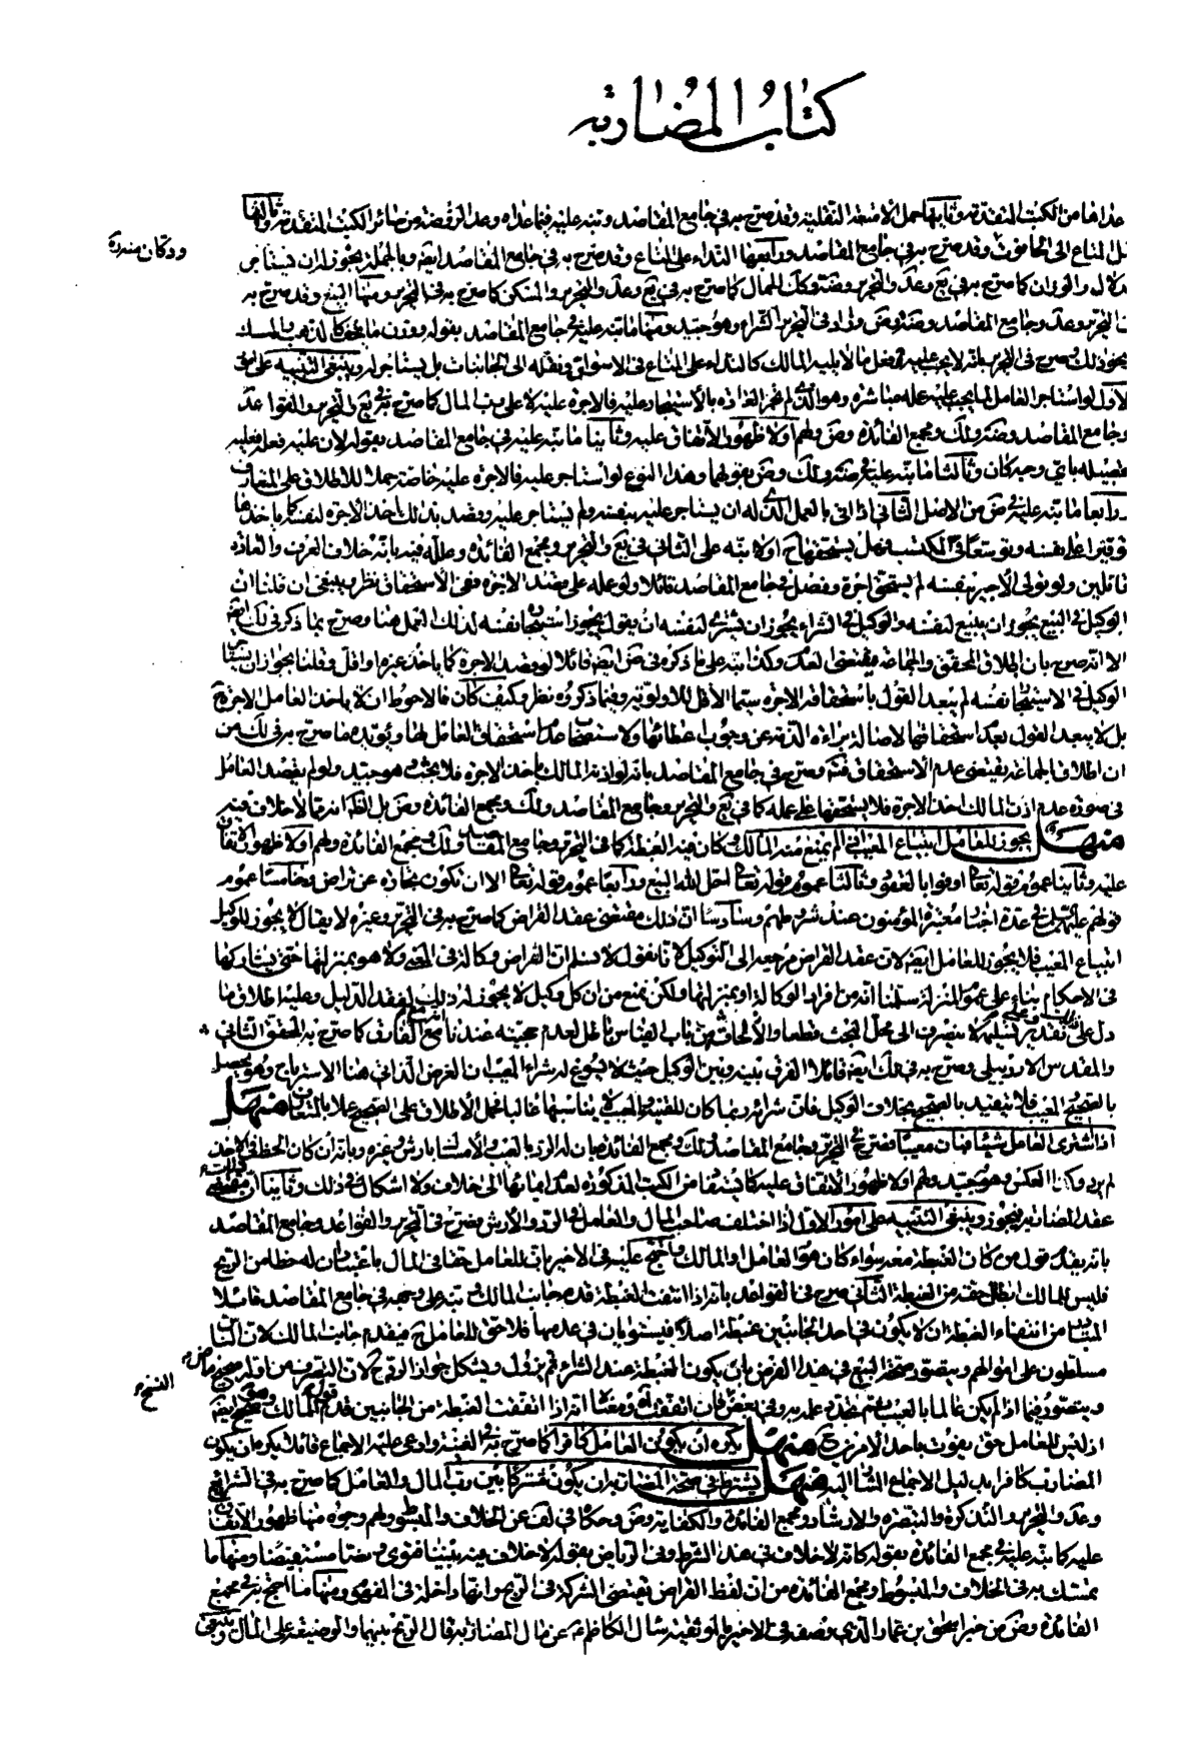 كتاب المضاربة
عدا ما من الكتب المتقدمة وثانيها حمل الأمتعة الثقيلة وقد صرح به في جامع المقاصد ونبه عليه فيما عداه وعد الروضة من سائر الكتب المتقدمة وثالثها
ودكان
نقل المتاع الى الحانوت وقد صرح به في جامع المقاصد ورابعها النداء على المتاع وقد صرح به في جامع المقاصد ايضا وبالجملة يجوز له ان يستاجر
والوزان كما صرح به في يع وعد والتحرير وضة ولك والحمال كما صرح به في يع وعد والتحرير والمسكن كما صرح به في التحرير ومنها البيع وقد صرح به
التحرير وعد وجامع المقاصد وضة وض وزاد في التحرير الشراء وهو جيد ومنها ما نبه عليه في جامع المقاصد بقوله ووزن ما يخف كالذهب والمسك
وصرح في التحرير بانه لا يجب عليه فعل ما لا يليه المالك كالنداء على المتاع في الاسواق ونقله الى الخانات بل يستاجر له وينبغي التنبيه على امور
الاول لو استاجر العامل لما يجب عليه عمله مباشرة وهو الذي لم تجر العادة بالاستيجار عليه فالاجرة عليه لا على رب المال كما صرح به في يع والتحرير والقواعد
وجامع المقاصد وضة ولك ومجمع الفائدة وض ولهم اولا ظهور الاتفاق عليه وثانيا ما نبه عليه في جامع المقاصد بقوله لان عليه فعله فعليه
تحصيله باي وجه كان وثالثا ما نبه عليه في ضة ولك وض بقولهما وهذا النوع لو استاجر عليه فالاجرة عليه خاصة حملا للاطلاق على المتعارف
ورابعا ما نبه عليه في ض من الاصل الثاني اذا اتى بالعمل الذي له ان يستاجر عليه بنفسه ولم يستاجر عليه وقصد بذلك اخذ الاجرة لنفسه كما ياخذها
على نفسه في الكسب فهل يستحقها ح او لا نبه على الثاني في يع والتحرير ومجمع الفائدة وعلله فيه بانه خلاف العرف والعادة
قائلين ولو تولى الاجير بنفسه لم يستحق اجرة وفصل في جامع المقاصد قائلا ولو عمله على قصد الاجرة ففي الاستحقاق نظر ينبغي ان قلنا ان
الوكيل في البيع يجوز ان يبيع لنفسه والوكيل في الشراء يجوز ان يشتري لنفسه ان يقول بجواز استيجار نفسه لذلك العمل هنا وصرح بما ذكر في لك ايضا
الا انه صرح بان اطلاق المحقق والجماعة يقتضي العدم وكذا نبه على ما ذكره في ض ايضا قائلا لو قصد الاجرة كما ياخذ غيره او اقل وقلنا بجواز ان يستاجر
الوكيل في الاستيجار نفسه لم يبعد القول باستحقاقه الاجرة سيما الاقل للاولوية وفيما ذكروه نظر وكيف كان فالاحوط ان لا ياخذ العامل الاجرة ح
بل لا يبعد القول بعدم استحقاقها لاصالة براءة الذمة عن وجوب اعطائها ولاستصحاب عدم استحقاق العامل لها ويؤيده ما صرح به في لك من
ان اطلاق الجماعة يقتضي عدم الاستحقاق وصرح في جامع المقاصد بانه لو اذن المالك باخذ الاجرة فلا بحث وهو جيد ولو لم يقصد العامل
في صورة عدم اذن المالك اخذ الاجرة فلا يستحقها على عمله كما في يع والتحرير وجامع المقاصد ولك ومجمع الفائدة وض بل الظ انه مما لا خلاف فيه
منهل يجوز للعامل ابتياع المعيب ان لم يمنع منه المالك وكان فيه الغبطة كما في التحرير وجامع المقاصد ولك ومجمع الفائدة ولهم اولا ظهور الاتفاق
عليه وثانيا عموم قوله تعالى اوفوا بالعقود وثالثا عموم قوله تعالى احل الله البيع ورابعا عموم قوله تعالى الا ان تكون تجارة عن تراض وخامسا عموم
قولهم عليهم السلام في عدة اخبار معتبرة المؤمنون عند شروطهم وسادسا ان ذلك مقتضى عقد القراض كما صرح به في التحرير وغيره لا يقال لا يجوز للوكيل
ابتياع المعيب فلا يجوز للعامل ايضا لان عقد القراض مرجعه الى التوكيل لانا نقول لا نسلم ان القراض وكالة في المعنى ولا هو بمنزلتها حتى يشاركها
في الاحكام بناء على عموم المنزلة سلمنا انه من افراد الوكالة او بمنزلتها ولكن نمنع من ان كل وكيل لا يجوز له ذلك لفقد الدليل وعليه اطلاق ما
دل على تقدير تسليمه لا ينصرف الى محل البحث قطعا والالحاق من باب القياس باطل لعدم حجيته عندنا مع الفارق كما صرح به المحقق الثاني
والمقدس الاردبيلي وصرح به في لك ايضا قائلا الفرق بينه وبين الوكيل حيث لا يسوغ له شراء المعيب ان الغرض الذاتي هنا الاسترباح وهو يحصل
بالصحيح والمعيب فلا يتقيد بالصحيح بخلاف الوكيل فان شرائه ربما كان للقنية والمعيب لا يناسبها غالبا فحمل الاطلاق على الصحيح عملا بالمتعارف منهل
اذا اشترى العامل شيئا فبان معيبا فصرح في التحرير وجامع المقاصد ولك ومجمع الفائدة بان له الرد بالعيب والامساك بارش وغيره وبانه ان كان الحظ في الاخذ
لم يرد وكذا العكس وهو جيد ولهم اولا ظهور الاتفاق عليه كما يستفاد من الكتب المذكورة لعدم ايمائها الى خلاف ولا اشكال في ذلك وثانيا ان مقتضى
عقد المضاربة يجوز وينبغي التنبيه على امور الاول اذا اختلف صاحب المال والعامل في الرد والارش فصرح في التحرير والقواعد وجامع المقاصد
بانه يقدم قول من كان الغبطة معه سواء كان هو العامل او المالك واحتج عليه في الاخير بان للعامل حقا في المال باعتبار ان له حظا من الربح
فليس للمالك ابطال حقه من الغبطة الثاني صرح في القواعد بانه اذا انتفت الغبطة قدم جانب المالك ونبه على وجهه في جامع المقاصد قائلا
المتبادر من انتفاء الغبطة ان لا يكون في احد الجانبين غبطة اصلا فيستويان في عدمها فلا حق للعامل ح فيقدم جانب المالك لان الناس
مسلطون على اموالهم ويتصور صحة البيع في هذا الفرض بان يكون الغبطة عند الشراء ثم يزول ويشكل جواز الرد ح لان التصرف من اوله صحيح ماض
الفسخ
ويتصور فيما اذا لم يكن عالما بالعيب ثم تجدد علمه به وفي بعض فان انتفت ومعناه انه اذا انتفت الغبطة من الجانبين قدم قول المالك وهو صحيح ايضا
اذ ليس للعامل حق يفوت باحد الامرين ح منهل يكره ان يكون العامل كافرا كما صرح به في الغنية وادعى عليه الاجماع قائلا يكره ان يكون
المضارب كافرا بدليل الاجماع المشار اليه منهل يشترط في صحة المضاربة ان يكون مشتركا بين رب المال والعامل كما صرح به في الشرايع
وعد والتحرير والتذكرة والتبصرة والارشاد ومجمع الفائدة والكفاية وض وحكاه في لف عن الخلاف والمبسوط ولهم وجوه منها ظهور الاتفاق
عليه كما نبه عليه في مجمع الفائدة بقوله كانه لا خلاف في هذا الشرط وفي الرياض بقوله لا خلاف فيه بيننا فتوى ونصا مستفيضا ومنها ما
تمسك به في الخلاف والمبسوط ومجمع الفائدة من ان لفظ القراض يقتضي الشركة في الربح وانها داخلة في المفهوم ومنها ما احتج به في مجمع
الفائدة وض من خبر اسحق بن عمار الذي وصف في الاخير بالموثقية سال الكاظم ع عن مال المضاربة قال الربح بينهما والوضيعة على المال وينبغي